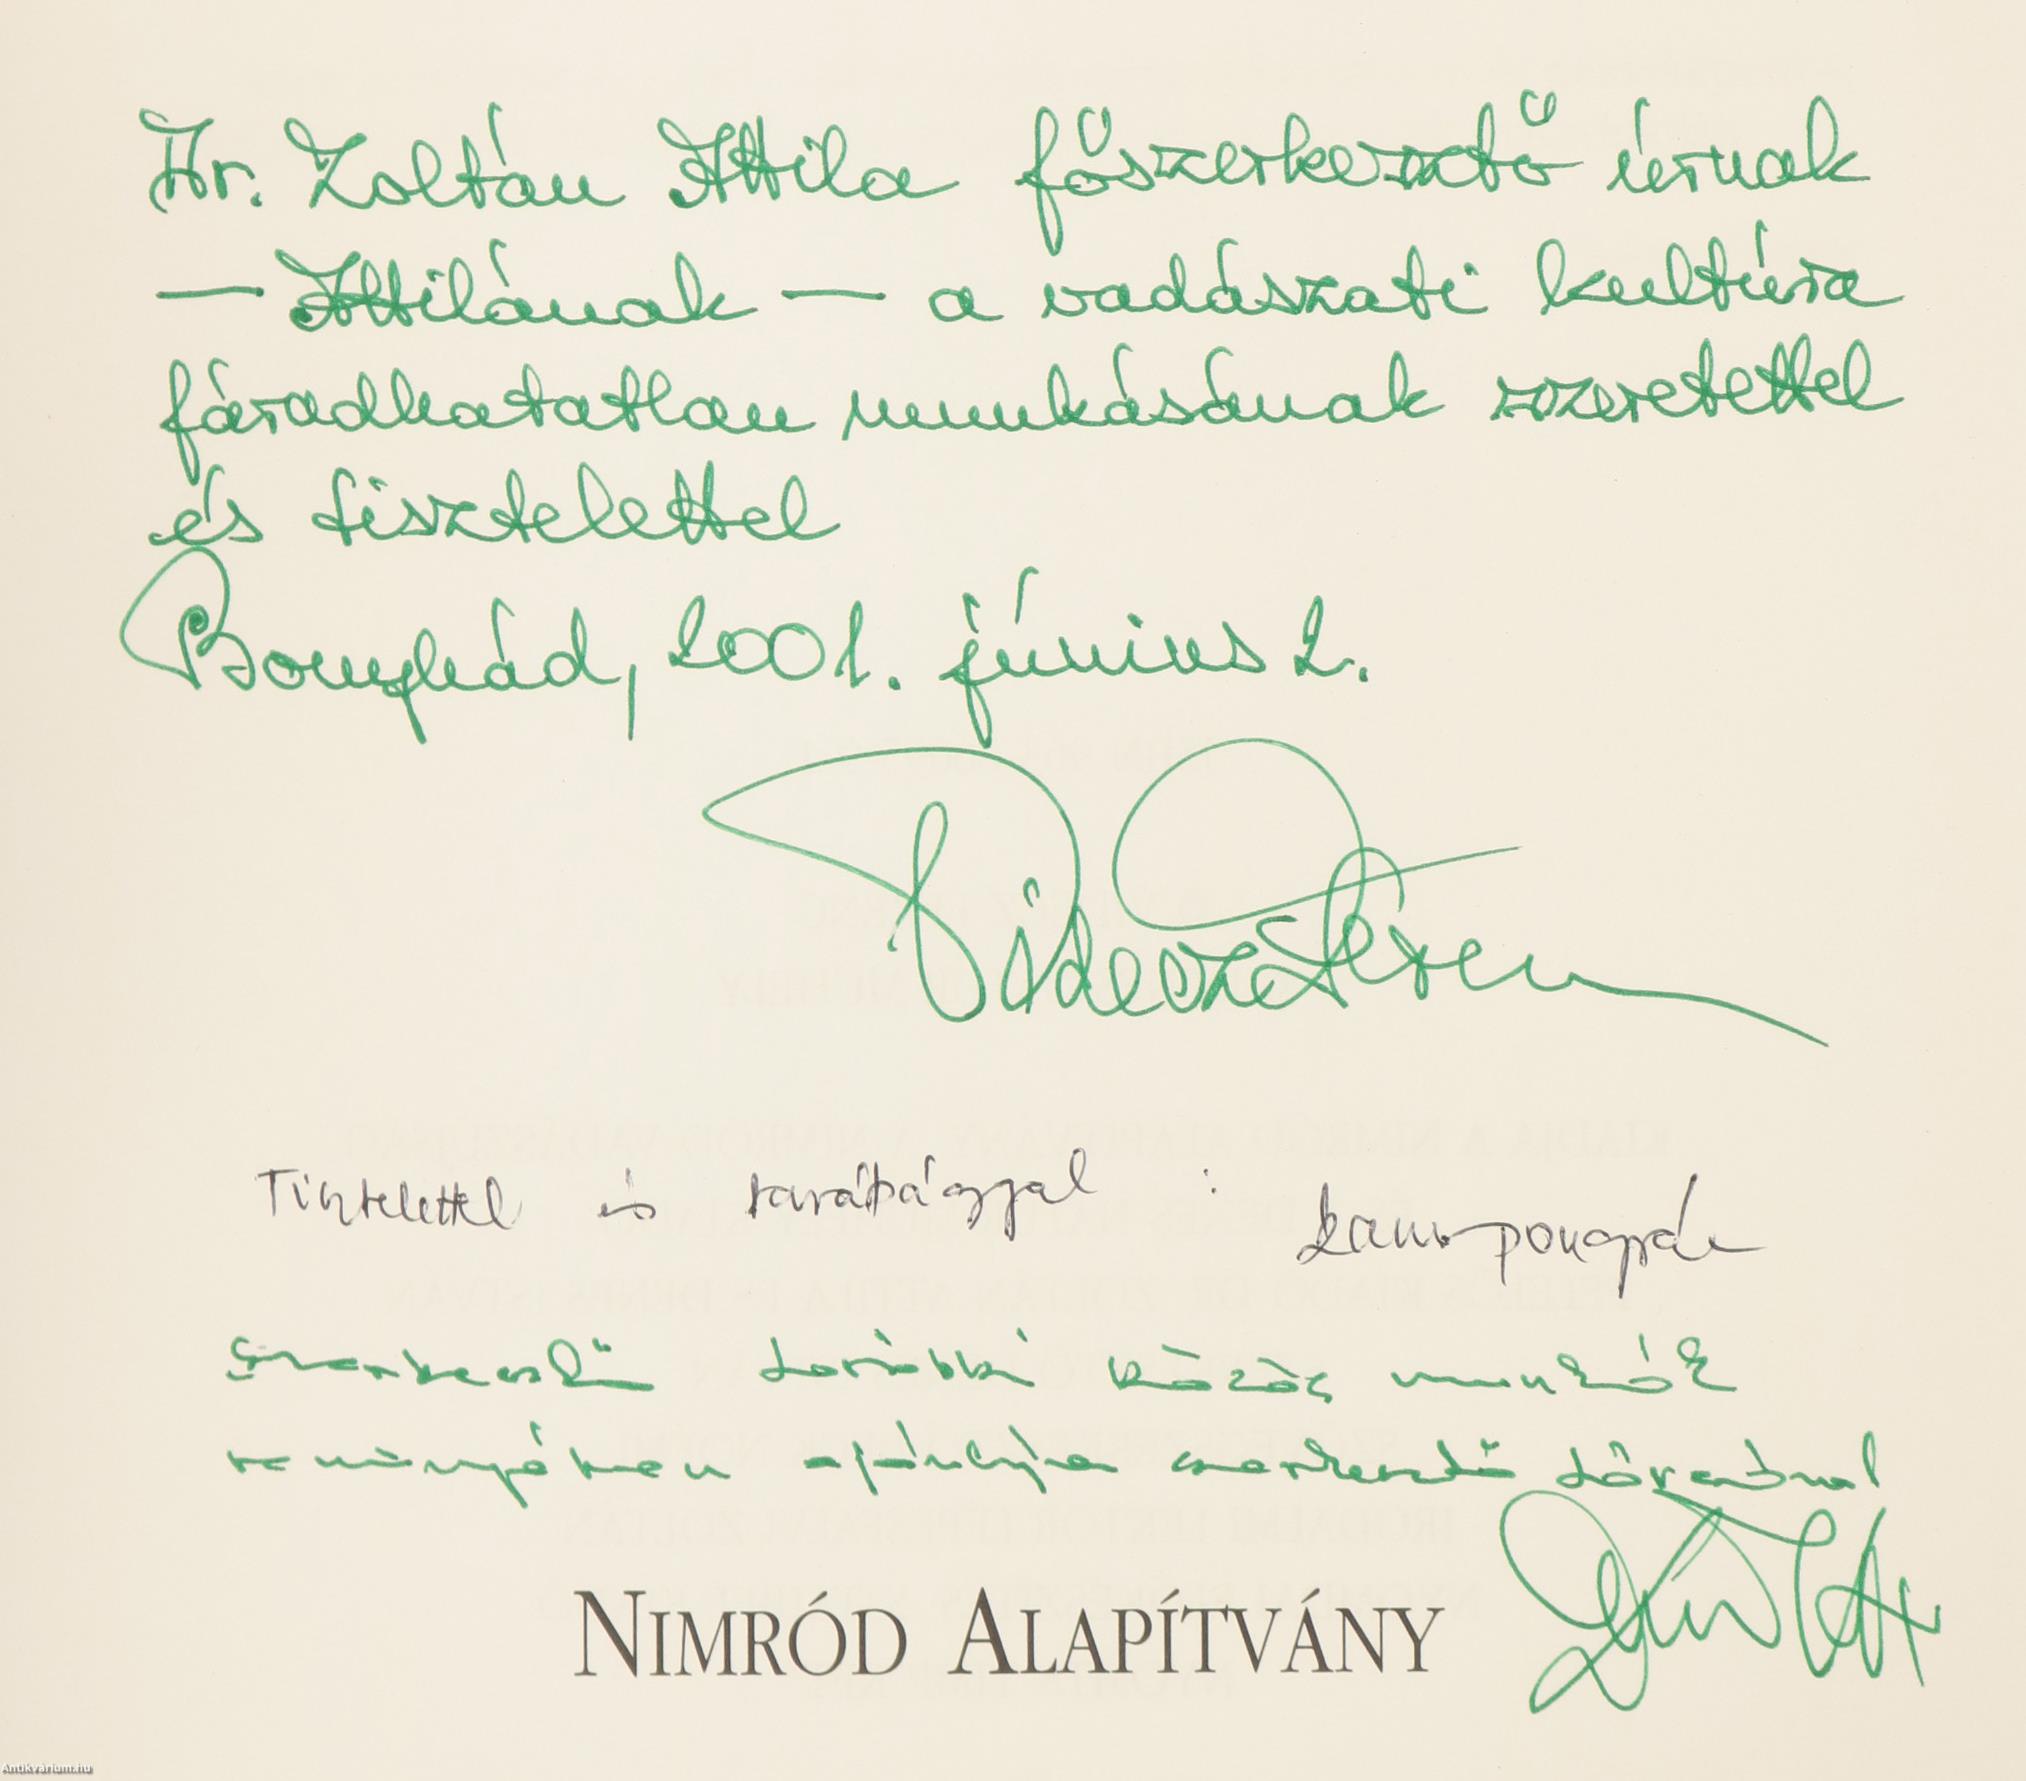 Hr. Zoltán Attila főszerkesztő úrnak
— Attilának — a vadászati kultúra
fáradhatatlan munkásának szeretettel
és tisztelettel
Bonyhád, 2001. június 2.
Tisztelettel és barátsággal :
további közös munkák
reményében ajánlja szerkesztő társadnak
NIMRÓD ALAPÍTVÁNY
Antikvarium.hu